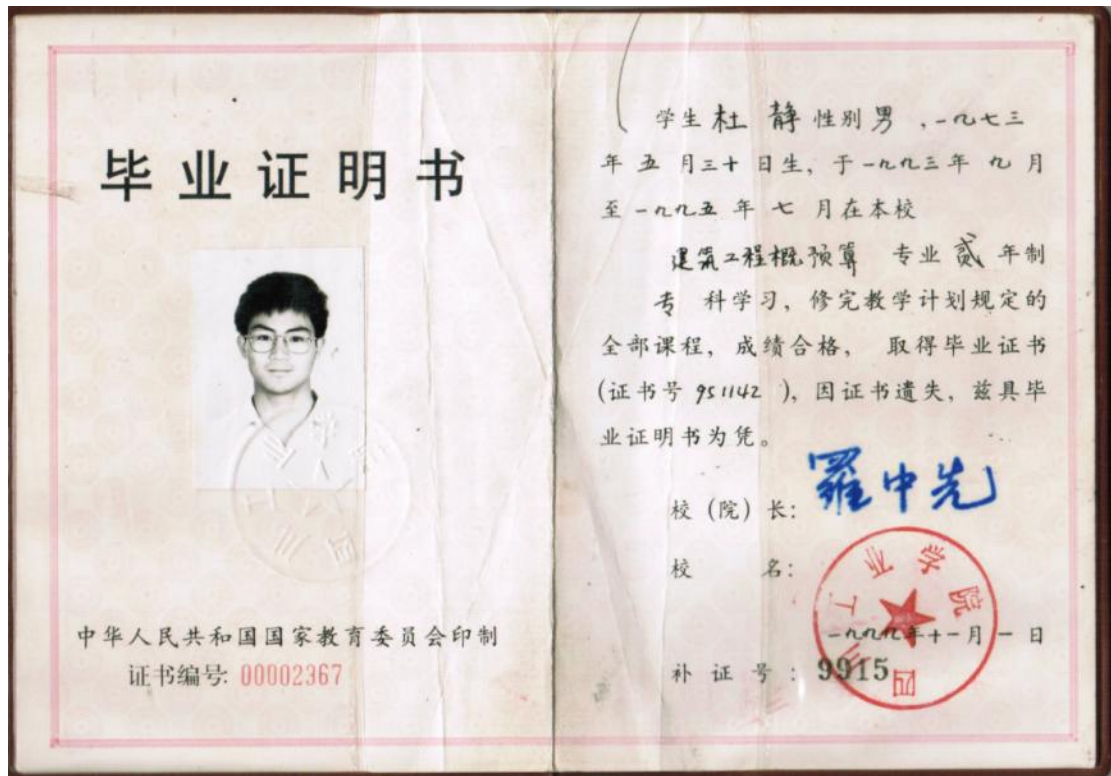 毕业证明书
中华人民共和国国家教育委员会印制
证书编号: 00002367
学生 杜 静 性别 男 ,一九七三
年 五 月三十日生, 于一九九三年 九 月
至一九九五 年 七 月在本校
建筑工程概预算 专业 贰 年制
专 科学习, 修完教学计划规定的
全部课程, 成绩合格, 取得毕业证书
(证书号 951142 ), 因证书遗失, 兹具毕
业证明书为凭。
校 (院) 长: 羅中先
校 名:
四川工业学院
一九九九年十一月一日
补 证 号 : 9915